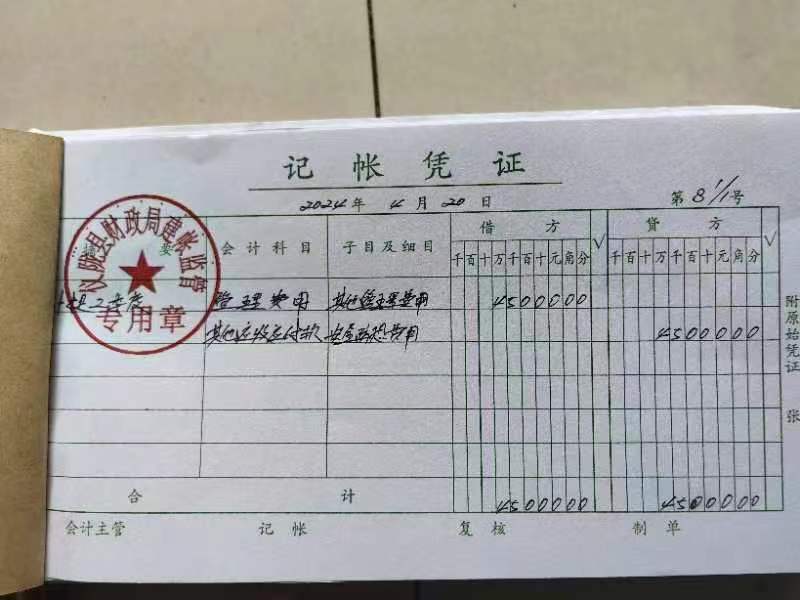 记帐凭证
2024年 4月 20日 第 8 1/1 号
摘要 会计科目 子目及细目 借方 √ 贷方 √
千百十万千百十元角分 千百十万千百十元角分
管理费用 其他管理费用 4500000
其他应付款 费用 4500000
合计 4500000 4500000
会计主管 记帐 复核 制单
附原始凭证 张
县财政局建帐监督
专用章